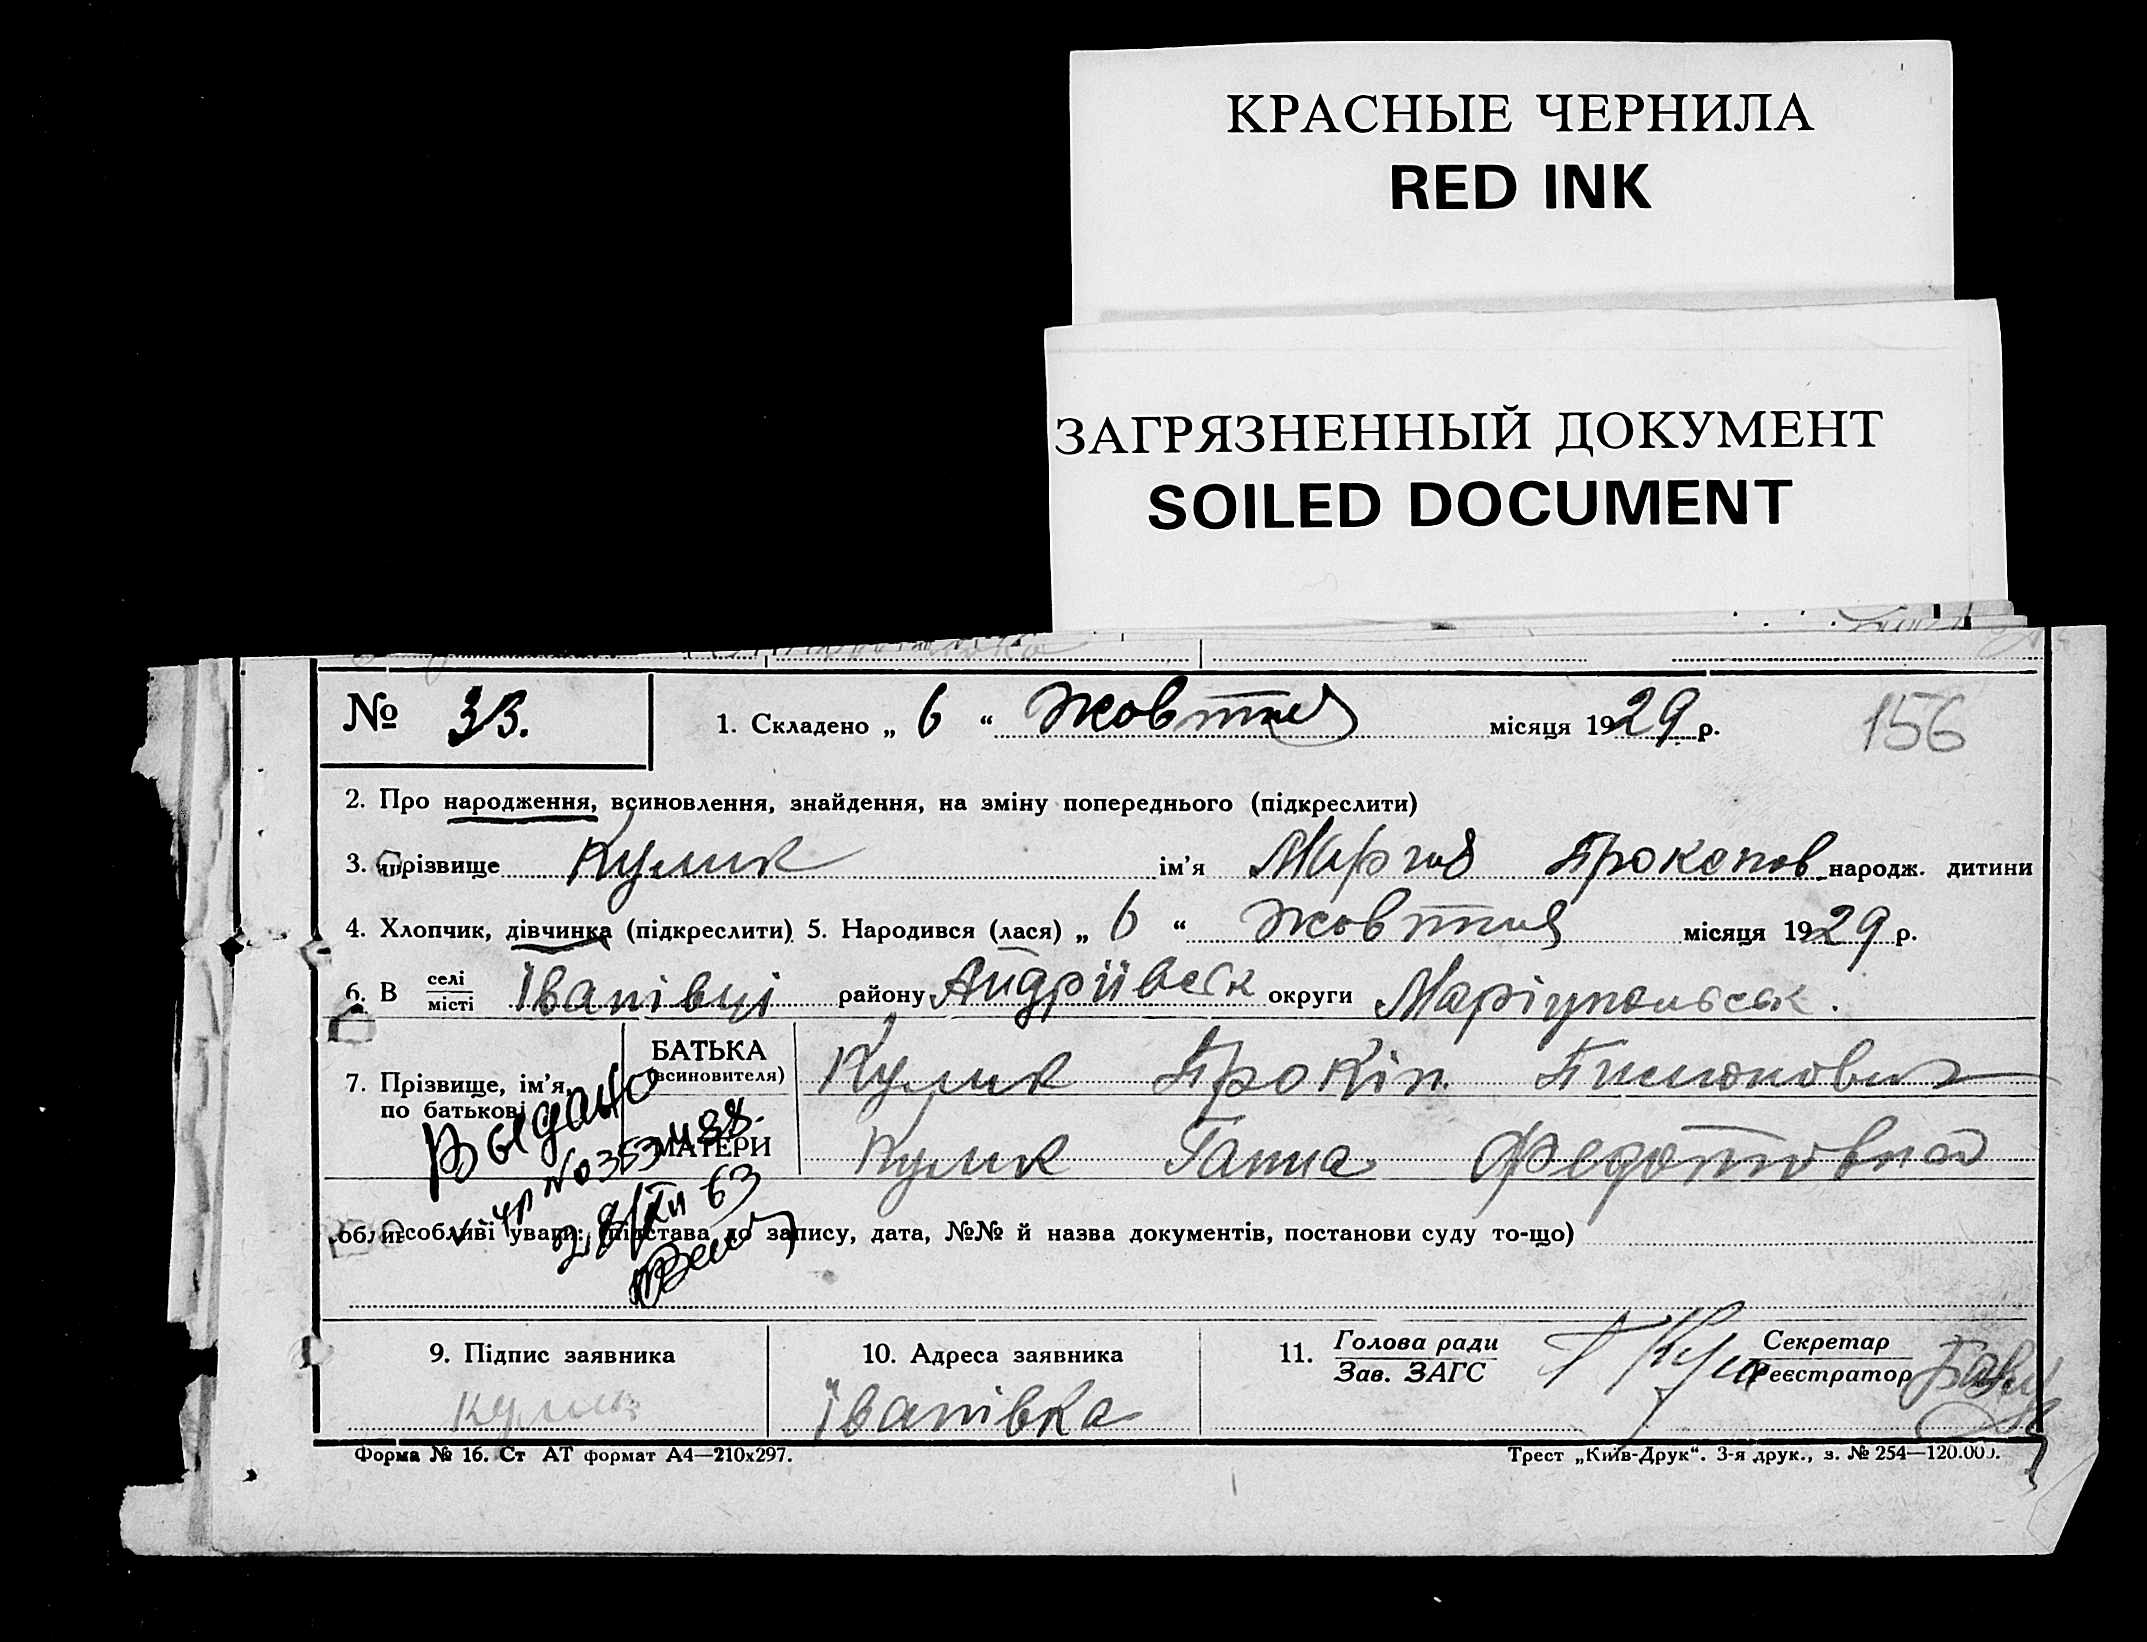 КРАСНЫЕ ЧЕРНИЛА
RED INK
ЗАГРЯЗНЕННЫЙ ДОКУМЕНТ
SOILED DOCUMENT
№ 33.
1. Складено „ 6 “ Жовтня місяця 1929 р.
156
2. Про народження, всиновлення, знайдення, на зміну попереднього (підкреслити)
3. Прізвище Кулик ім’я Марія Прокопов народж. дитини
4. Хлопчик, дівчинка (підкреслити) 5. Народився (лася) „ 6 “ жовтня місяця 1929 р.
6. В селі місті Іванівці району Андріївськ округи Маріупольськ.
7. Прізвище, ім’я, по батькові
БАТЬКА (всиновителя) Кулик Прокіп Пименович
МАТЕРИ Кулик Ганна Федотовна
Выдано
№
63
особливі уваги: (підстава до запису, дата, №№ й назва документів, постанови суду то-що)
9. Підпис заявника
Кулик
10. Адреса заявника
Іванівка
11. Голова ради Зав. ЗАГС
Секретар Реєстратор
Форма № 16. Ст АТ формат А4—210х297.
Трест „Київ-Друк“. 3-я друк., з. № 254—120.000.